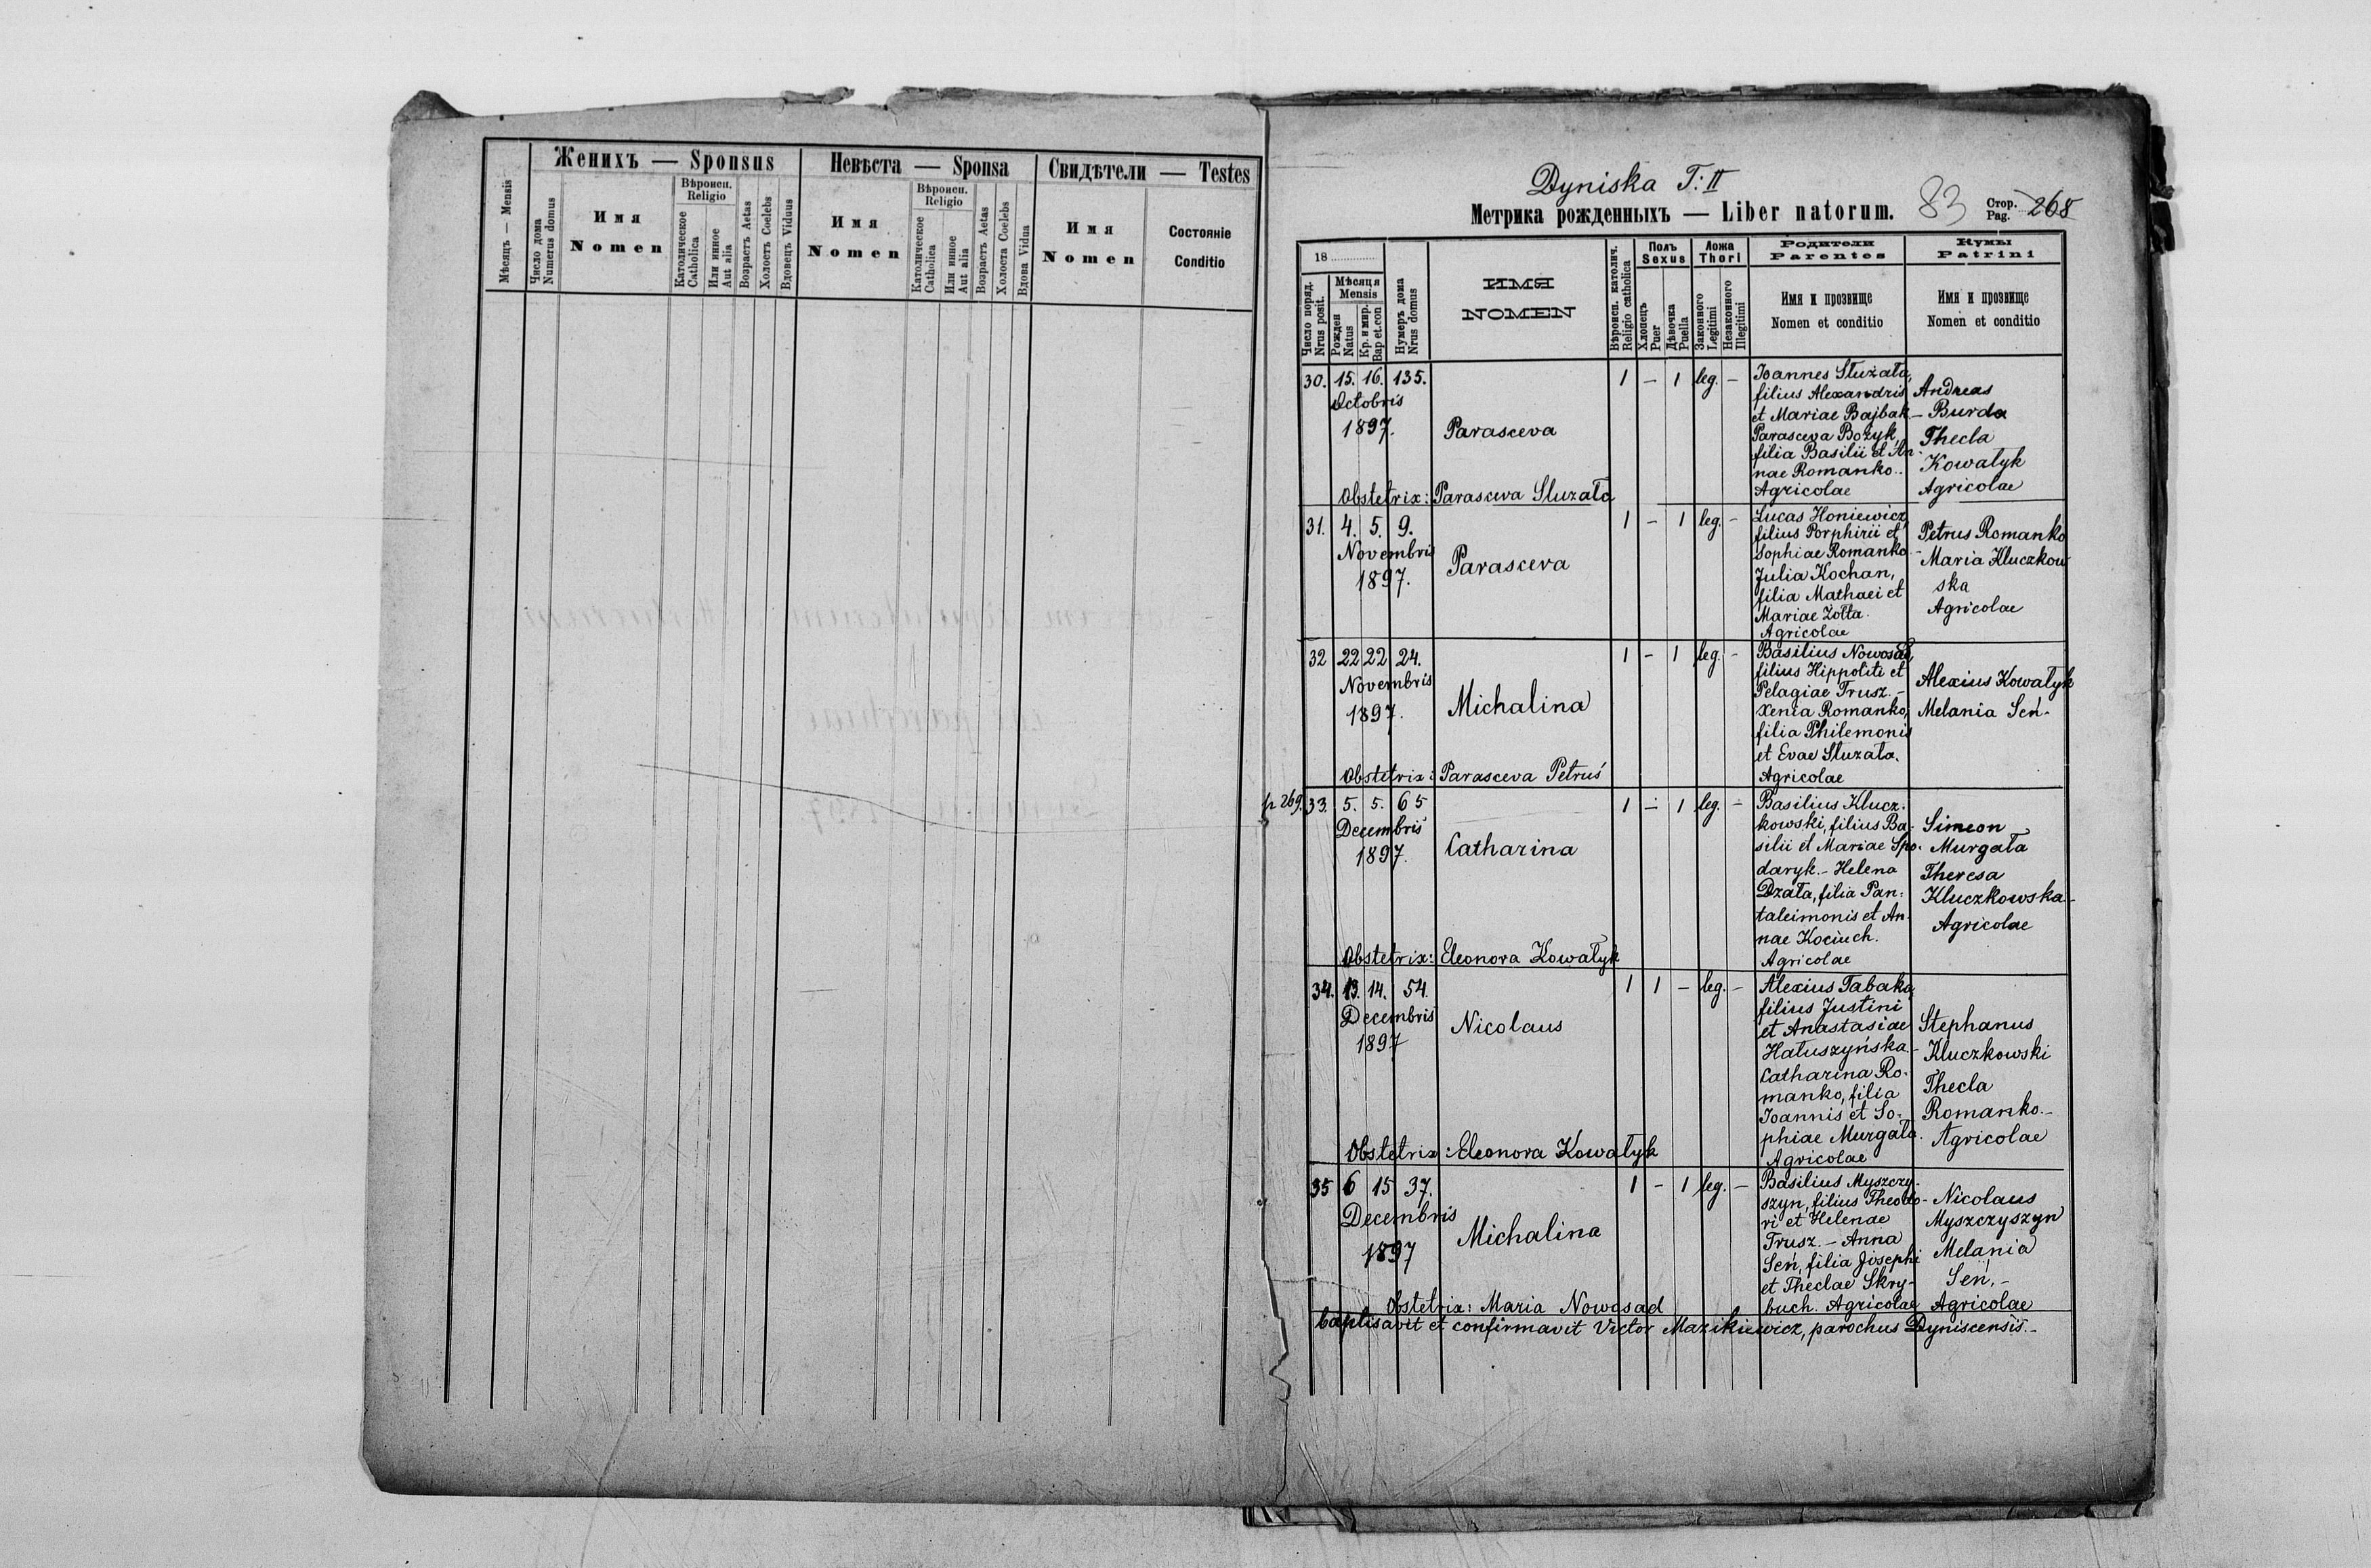 Женихъ — Sponsus
Невѣста — Sponsa
Свидѣтели — Testes
Мѣсяцъ — Mensis
Число дома
Numerus domus
Имя
Nomen
Вѣроисп.
Religio
Католическое
Catholica
Или инное
Aut alia
Возрастъ Aetas
Холостъ Coelebs
Вдовецъ Viduus
Имя
Nomen
Вѣроисп.
Religio
Католическое
Catholica
Или инное
Aut alia
Возрастъ Aetas
Холоста Coelebs
Вдова Vidua
Имя
Nomen
Состояніе
Conditio
Dyniska T: II
Метрика рожденныхъ — Liber natorum.
83
Стор.
Pag. 268
18
Число поряд.
Nrus posit.
Мѣсяця
Mensis
Рожден
Natus
Кр. и мир.
Bap et.con
Нумеръ дома
Nrus domus
ИМЯ
NOMEN
Вѣроисп. католич.
Religio catholica
Полъ
Sexus
Хлопець
Puer
Дѣвочка
Puella
Ложа
Thori
Законного
Legitimi
Незаконного
Illegitimi
Родители
Parentes
Имя и прозвище
Nomen et conditio
Кумы
Patrini
Имя и прозвище
Nomen et conditio
30. 15. 16. 135.
Octobris
1897.
Parasceva
1 – 1 leg. –
Joannes Słuzała,
filius Alexandris
et Mariae Bajbak –
Parasceva Bożyk,
filia Basilii et An-
nae Romanko.
Agricolae
Andreas
Burda
Thecla
Kowałyk
Agricolae
Obstetrix: Parasceva Słuzała
31. 4. 5. 9.
Novembris
1897.
Parasceva
1 – 1 leg. –
Lucas Honiewicz,
filius Porphirii et
Sophiae Romanko –
Julia Kochan,
filia Mathaei et
Mariae Żółta.
Agricolae
Petrus Romanko
Maria Kluczkow
ska
Agricolae
32 22 22 24.
Novembris
1897.
Michalina
1 – 1 leg. –
Basilius Nowosad,
filius Hippoliti et
Pelagiae Trusz. –
Xenia Romanko,
filia Philemonis
et Evae Słuzała.
Agricolae
Alexius Kowałyk
Melania Seń –
Obstetrix: Parasceva Petruś
p 269. 33. 5. 5. 65
Decembris
1897.
Catharina
1 – 1 leg. –
Basilius Klucz-
kowski, filius Ba-
silii et Mariae Spo-
daryk. – Helena
Dzała, filia Pan-
taleimonis et An-
nae Kociuch.
Agricolae
Simeon
Murgała
Theresa
Kluczkowska –
Agricolae
Obstetrix: Eleonora Kowałyk
34. 13. 14. 54.
Decembris
1897
Nicolaus
1 1 – leg. –
Alexius Tabaka,
filius Justini
et Anastasiae
Hałuszyńska –
Catharina Ro-
manko, filia
Joannis et So-
phiae Murgała.
Agricolae
Stephanus
Kluczkowski
Thecla
Romanko. –
Agricolae
Obstetrix: Eleonora Kowałyk
35 6 15 37.
Decembris
1897
Michalina
1 – 1 leg. –
Basilius Myszczy-
szyn, filius Theodo-
ri et Helenae
Trusz. – Anna
Seń, filia Josephi
et Theclae Skry-
buch. Agricolae
Nicolaus
Myszczyszyn
Melania
Seń, –
Agricolae
Obstetrix: Maria Nowosad
baptisavit et confirmavit Victor Mazikiewicz, parochus Dyniscensis. –